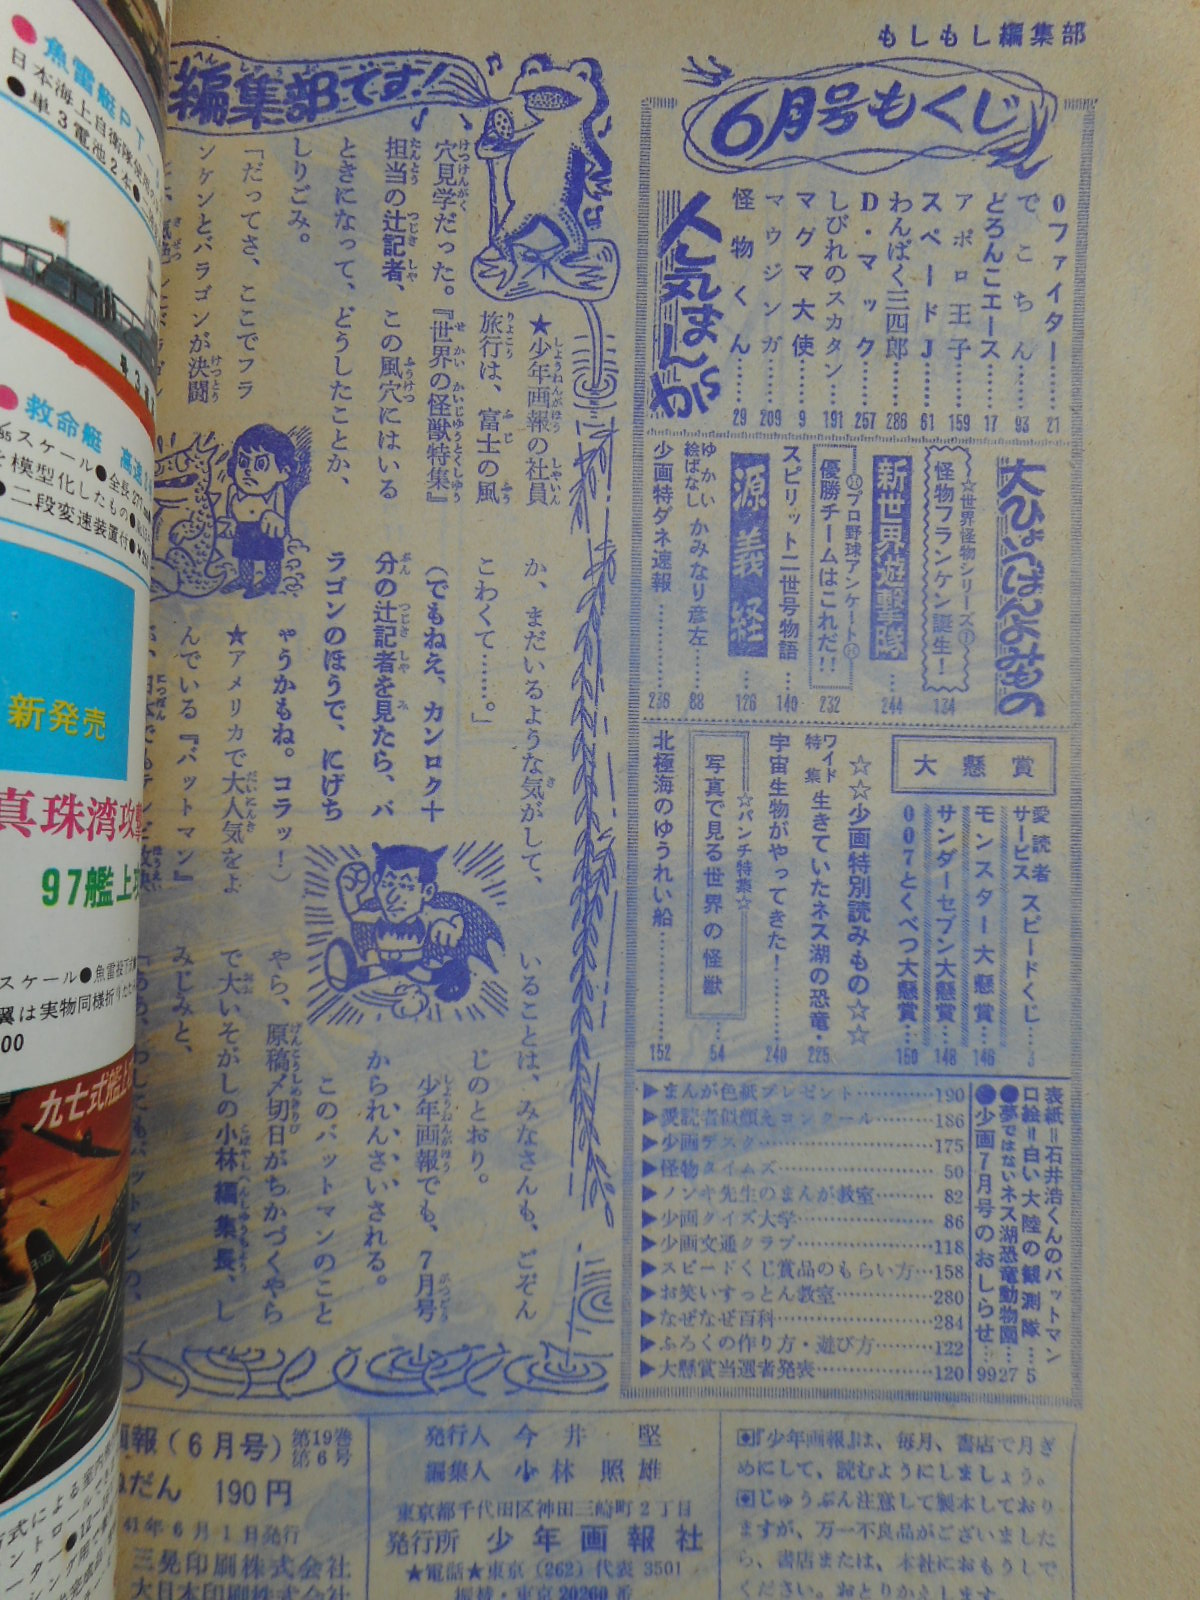 もしもし編集部
6月号もくじ
人気まんが
0ファイター……21
でこちん……93
どろんこエース……17
アポロ王子……159
スペードJ……61
わんぱく三四郎……286
D・マック……257
しびれのスカタン……191
マグマ大使……9
マウジンガ……209
怪物くん……29
大ひょうばんよみもの
☆世界怪物シリーズ⑦
怪物フランケン誕生!……134
新世界遊撃隊……244
プロ野球アンケート
優勝チームはこれだ!!……232
スピリット二世号物語……140
源義経……126
ゆかい絵ばなし かみなり彦左……88
少画特ダネ速報……236
大懸賞
愛読者サービス スピードくじ……3
モンスター大懸賞……146
サンダーセブン大懸賞……148
007とくべつ大懸賞……150
☆☆少画特別読みもの☆☆
ワイド特集 生きていたネス湖の恐竜・225
宇宙生物がやってきた!……240
☆パンチ特集☆
写真で見る世界の怪獣……54
北極海のゆうれい船……152
表紙=石井浩くんのバットマン
口絵=白い大陸の観測隊……5
●夢ではないネス湖恐竜動物園…27
●少画7月号のおしらせ…99
▶まんが色紙プレゼント……190
▶愛読者似顔えコンクール……186
▶少画デスク……175
▶怪物タイムズ……50
▶ノンキ先生のまんが教室……82
▶少画クイズ大学……86
▶少画文通クラブ……118
▶スピードくじ賞品のもらい方…158
▶お笑いすっとん教室……280
▶なぜなぜ百科……284
▶ふろくの作り方・遊び方……122
▶大懸賞当選者発表……120
編集部です!
★少年画報の社員
旅行は、富士の風
穴見学だった。『世界の怪獣特集』
担当の辻記者、この風穴にはいる
ときになって、どうしたことか、
しりごみ。
「だってさ、ここでフラ
ンケンとバラゴンが決闘
か、まだいるような気がして、
こわくて……。」
(でもねえ、カンロク十
分の辻記者を見たら、バ
ラゴンのほうで、にげち
ゃうかもね。コラッ!)
★アメリカで大人気をよ
んでいる『バットマン』
いることは、みなさんも、ごぞん
じのとおり。
少年画報でも、7月号
かられんさいされる。
このバットマンのこと
やら、原稿〆切日がちかづくやら
で大いそがしの小林編集長、し
みじみと、
画報(6月号) 第19巻第6号
ねだん 190円
41年6月1日発行
三晃印刷株式会社
大日本印刷株式会社
発行人 今井堅
編集人 小林照雄
東京都千代田区神田三崎町2丁目
発行所 少年画報社
★電話★東京(262)代表3501
振替・東京20260番
『少年画報』は、毎月、書店で月ぎ
めにして、読むようにしましょう。
じゅうぶん注意して製本しており
ますが、万一不良品がございました
ら、書店または、本社におもうしで
ください。おとりかえします。
●魚雷艇PT
日本海上自衛隊
●単3電池2本
●救命艇 高速
スケール●全長
模型化したもの
●二段変速装置付
新発売
真珠湾攻撃
97艦上攻
スケール●魚雷投下
翼は実物同様折りたたみ
00
九七式艦上